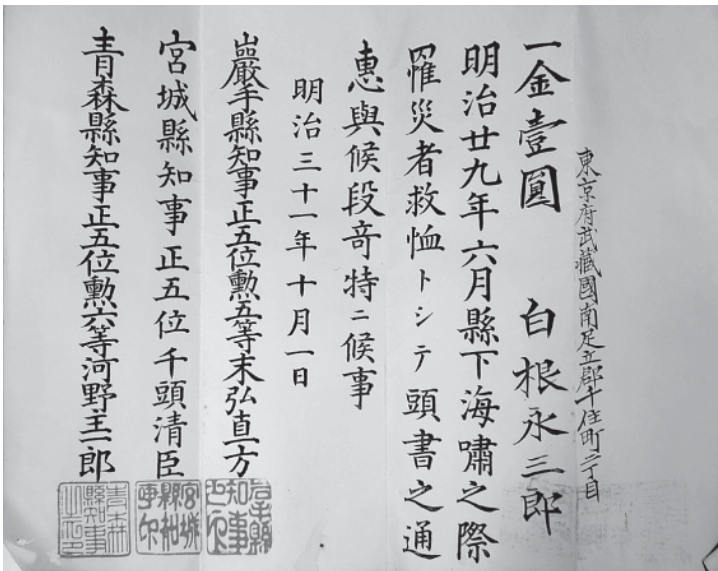 東京府武蔵國南足立郡千住町二丁目
一金壹圓 白根永三郎
明治廿九年六月縣下海嘯之際
罹災者救恤トシテ頭書之通
惠與候段奇特ニ候事
明治三十一年十月一日
巖手縣知事正五位勲五等末弘直方
宮城縣知事正五位千頭清臣
青森縣知事正五位勲六等河野主一郎
岩手縣知事之印
宮城縣知事印
青森縣知事之印